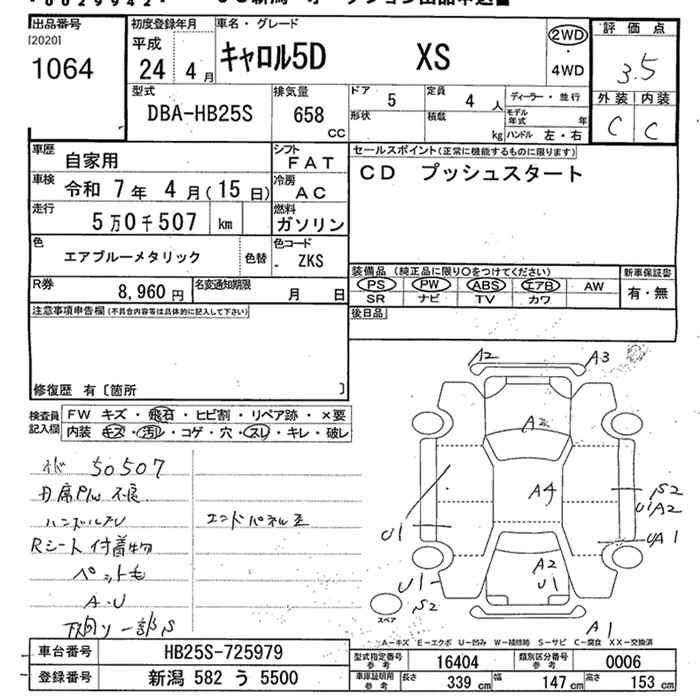 出品番号
[2020]
1064
初度登録年月
平成
24 4 月
車名・グレード
キャロル5D XS
2WD
・
4WD
評価点
3.5
外装 内装
C C
型式
DBA-HB25S
排気量
658
CC
ドア
5
定員
4 人
ディーラー・並行
形状
積載
kg
モデル年式 年
ハンドル 左・右
車歴
自家用
シフト
FAT
セールスポイント(正常に機能するものに限ります)
CD プッシュスタート
車検
令和 7 年 4 月 (15 日)
冷房
AC
走行
5 万 0 千 507 km
燃料
ガソリン
色
エアブルーメタリック
色替
色コード
- ZKS
R券
8,960 円
名変通知期限
月 日
装備品 (純正品に限り○をつけてください)
PS PW ABS エアB AW
SR ナビ TV カワ
新車保証書
有・無
注意事項申告欄(不具合内容等は具体的に記入して下さい)
後日品
修復歴 有〔箇所 〕
検査員
記入欄
FW キズ・飛石・ヒビ割・リペア跡・×要
内装 キズ・汚レ・コゲ・穴・スレ・キレ・破レ
50507
ハンドルスレ
Rシート付着物
ペット毛
A.U
下廻り一部S
エンドパネル歪
A2
A3
A2
A4
A2
U1
U1
U1
S2
S2
U1A2
UA1
A1
スペア
A-キズ E-エクボ U-凹み W-補修跡 S-サビ C-腐食 XX-交換済
車台番号
HB25S-725979
登録番号
新潟 582 う 5500
型式指定番号
参考
16404
類別区分番号
参考
0006
車庫証明用
参考
長さ 339 cm
幅 147 cm
高さ 153 cm